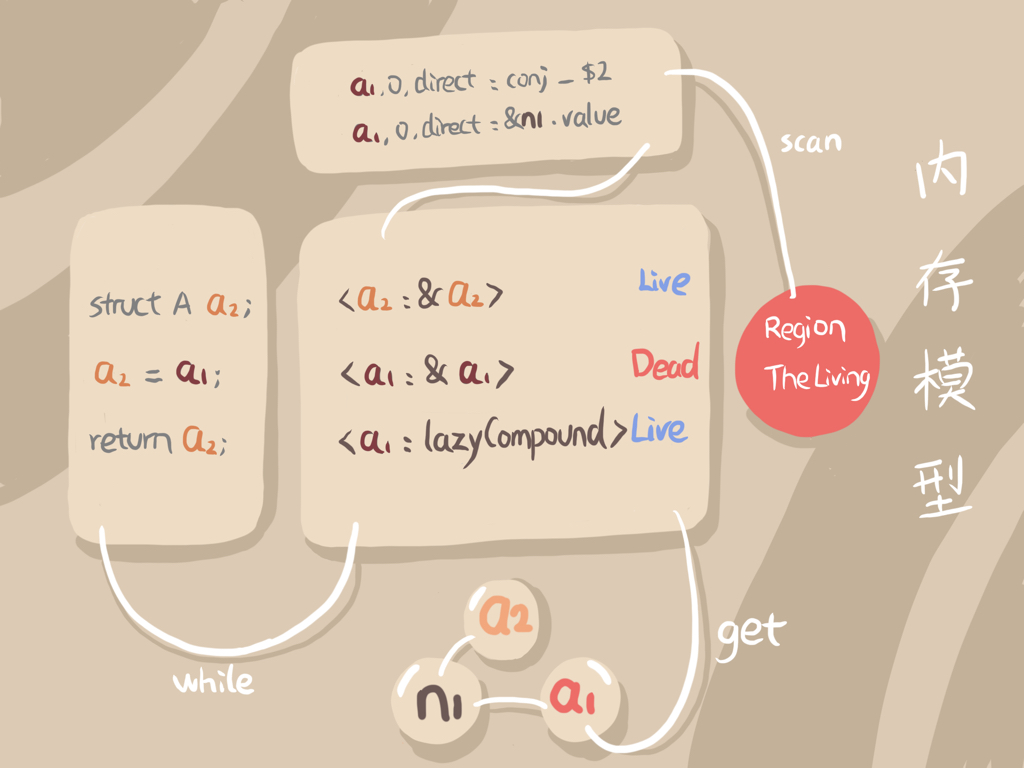 a1,0,direct : conj_$2
a1,0,direct : &n1.value
scan
内存模型
struct A a2;
a2 = a1;
return a2;
<a2 : & a2> Live
<a1 : & a1> Dead
<a1 : lazyCompound> Live
Region
The Living
while
get
a2
n1
a1